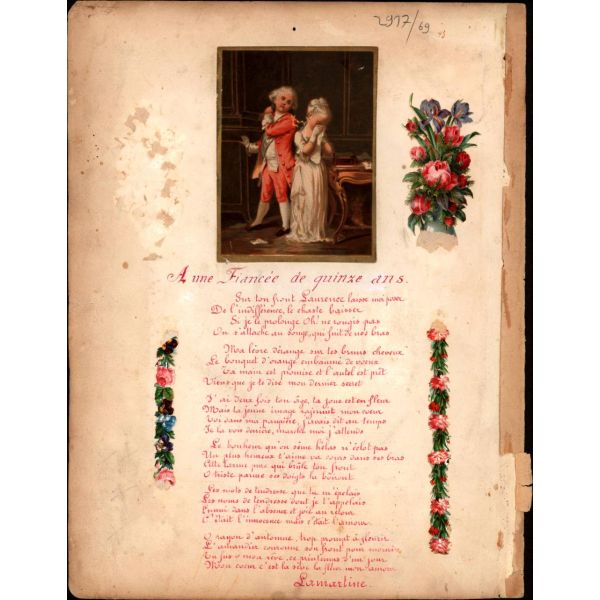 2917/69
A une Fiancée de quinze ans.
Sur ton front Laurence laisse moi poser
De l'indifférence, le chaste baiser
Si je le prolonge Oh! ne rougis pas
On s'attache au songe, qui fuit de nos bras
Ma lèvre dérange sur tes bruns cheveux
Le bouquet d'orange embaumé de vœux
Ta main est promise et l'autel est prêt
Viens que je te dise mon dernier secret
J'ai deux fois ton âge, ta joue est en fleur
Mais ta jeune image rajeunit mon cœur
Toi dans ma paupière, j'avais dit au temps
Je la vois derrière, marche moi j'attends
Le bonheur qu'on sème hélas n'éclot pas
Un plus heureux t'aime va cours dans ses bras
Cette larme pure qui brûle ton front
O triste parme ses doigts la boiront
Les mots de tendresse que tu m'épelais
Les noms de tendresse dont je t'appelais
Ennui dans l'absence et joie au retour
C'était l'innocence mais c'était l'amour
O rayon d'automne, trop prompt à fleurir
L'amandier couronne son front pour mourir
Tu fus ô mon rêve, ce printemps d'un jour
Mon cœur c'est la sève la fleur mon amour
Lamartine.